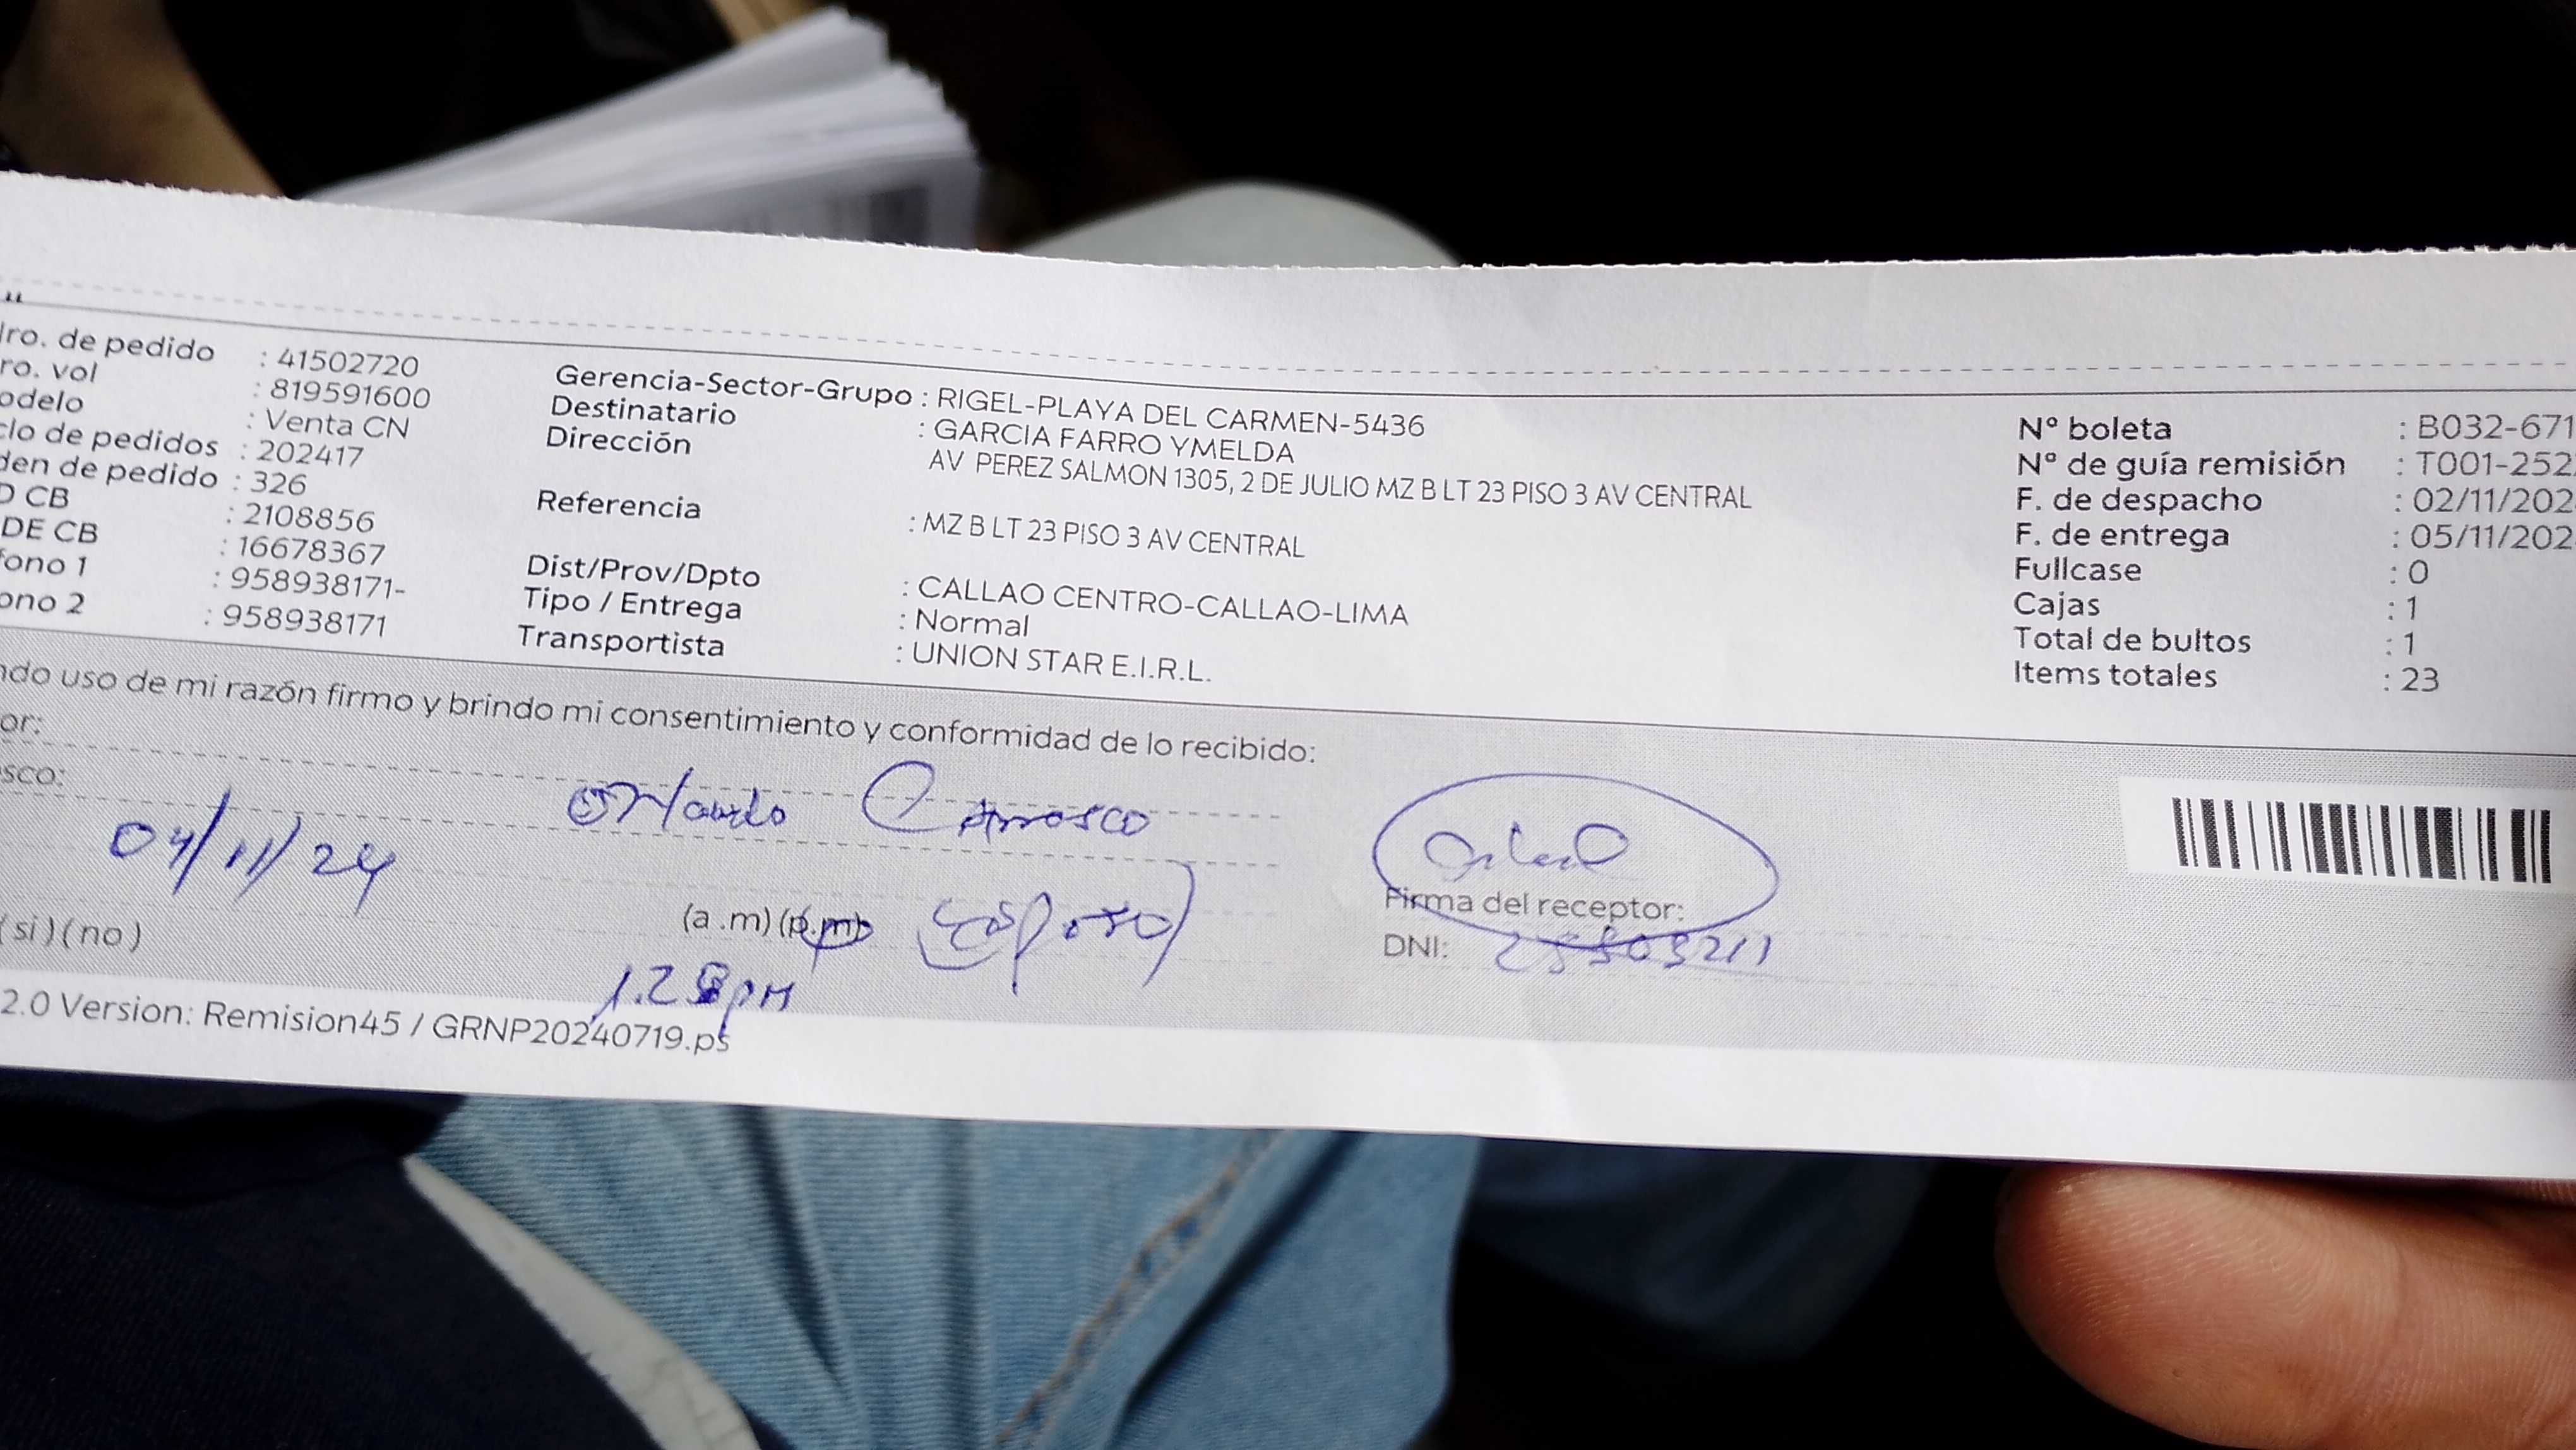 ro. de pedido : 41502720
ro. vol : 819591600
odelo : Venta CN
clo de pedidos : 202417
den de pedido : 326
D CB : 2108856
DE CB : 16678367
fono 1 : 958938171-
ono 2 : 958938171
Gerencia-Sector-Grupo : RIGEL-PLAYA DEL CARMEN-5436
Destinatario : GARCIA FARRO YMELDA
Dirección AV PEREZ SALMON 1305, 2 DE JULIO MZ B LT 23 PISO 3 AV CENTRAL
Referencia : MZ B LT 23 PISO 3 AV CENTRAL
Dist/Prov/Dpto : CALLAO CENTRO-CALLAO-LIMA
Tipo / Entrega : Normal
Transportista : UNION STAR E.I.R.L.
Nº boleta : B032-671
Nº de guía remisión : T001-252
F. de despacho : 02/11/202
F. de entrega : 05/11/202
Fullcase : 0
Cajas : 1
Total de bultos : 1
Items totales : 23
ndo uso de mi razón firmo y brindo mi consentimiento y conformidad de lo recibido:
or:
sco:
Orlando Carrasco
04/11/24
(si) (no)
(a.m) (p.m) Esposo)
1.28 pm
Firma del receptor:
DNI:
2.0 Version: Remision45 / GRNP20240719.ps